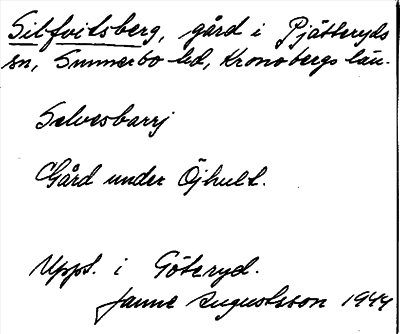 Silfvitsberg, gård i Pjätteryds
sn, Sunnerbo hd, Kronobergs län.
Selvesbarrj
Gård under Öjhult.
Uppt. i Göteryd.
Janne Augustsson 1944